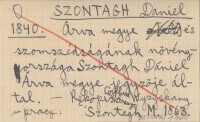 SZONTAGH Dániel
1840. Árva megye és
szomszédságának növény-
országa Szontagh Dániel
Árva megye jegyzője ál-
tal. – Kézirat
Szontagh M. 1868.